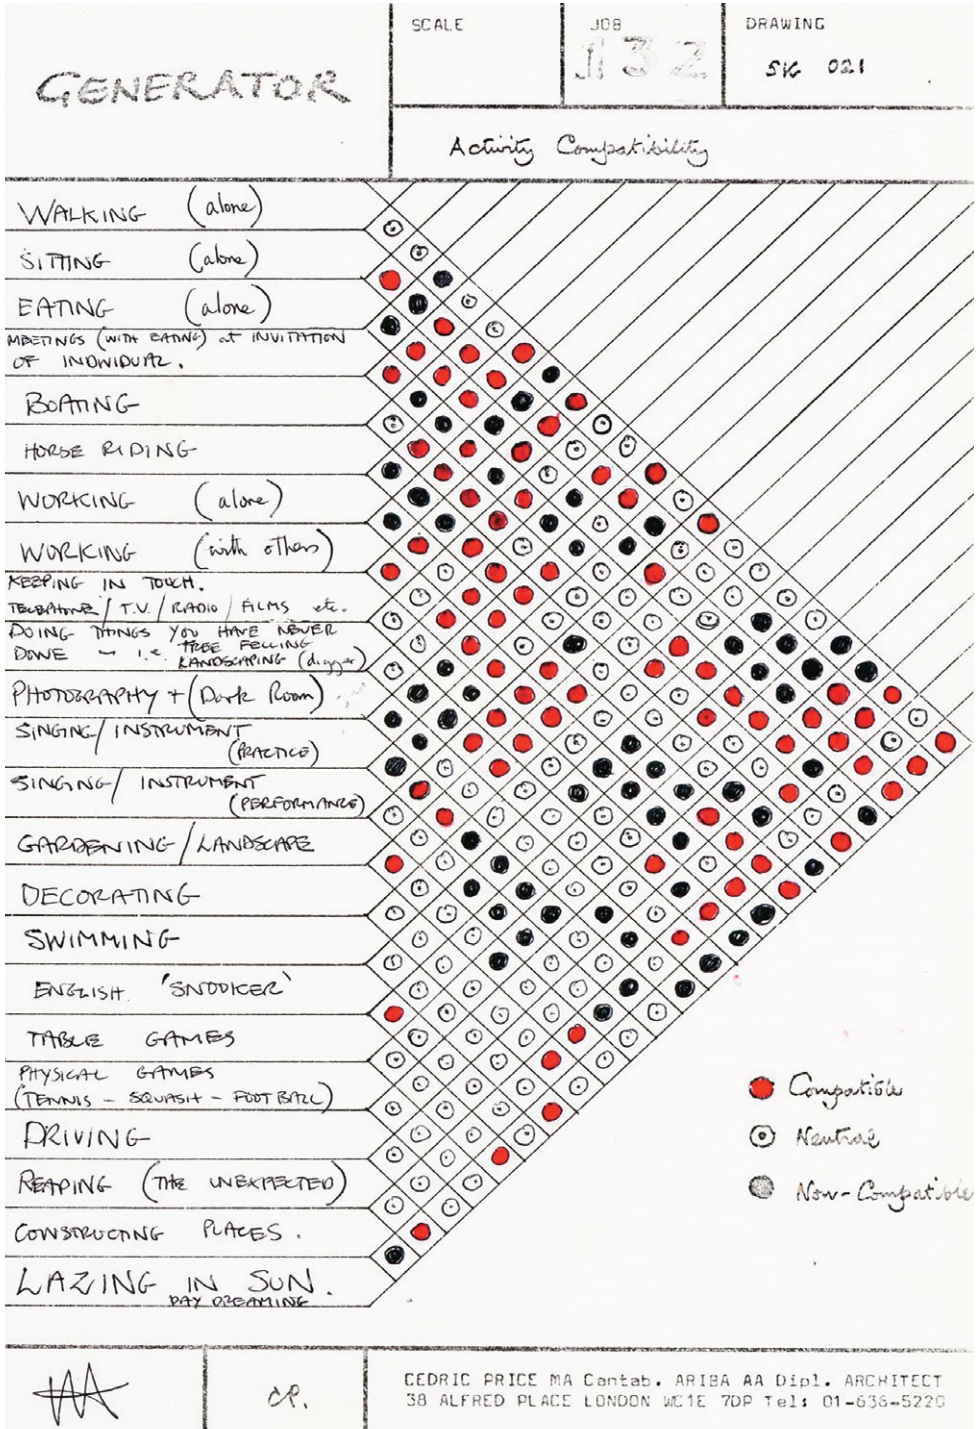 GENERATOR
SCALE
JOB
132
DRAWING
SK 021
Activity Compatibility
WALKING (alone)
SITTING (alone)
EATING (alone)
MEETINGS (WITH EATING) at INVITATION
OF INDIVIDUAL.
BOATING
HORSE RIDING
WORKING (alone)
WORKING (with others)
KEEPING IN TOUCH.
TELEPHONE / T.V. / RADIO / FILMS etc.
DOING THINGS YOU HAVE NEVER
DONE - i.e. TREE FELLING
LANDSCAPING (digger)
PHOTOGRAPHY + (Dark Room)
SINGING / INSTRUMENT
(PRACTICE)
SINGING / INSTRUMENT
(PERFORMANCE)
GARDENING / LANDSCAPE
DECORATING
SWIMMING
ENGLISH 'SNOOKER'
TABLE GAMES
PHYSICAL GAMES
(TENNIS - SQUASH - FOOTBALL)
DRIVING
REAPING (THE UNEXPECTED)
CONSTRUCTING PLACES.
LAZING IN SUN.
DAY DREAMING
Compatible
Neutral
Non-Compatible
CP.
CEDRIC PRICE MA Cantab. ARIBA AA Dipl. ARCHITECT
38 ALFRED PLACE LONDON WC1E 7DP Tel: 01-636-5220